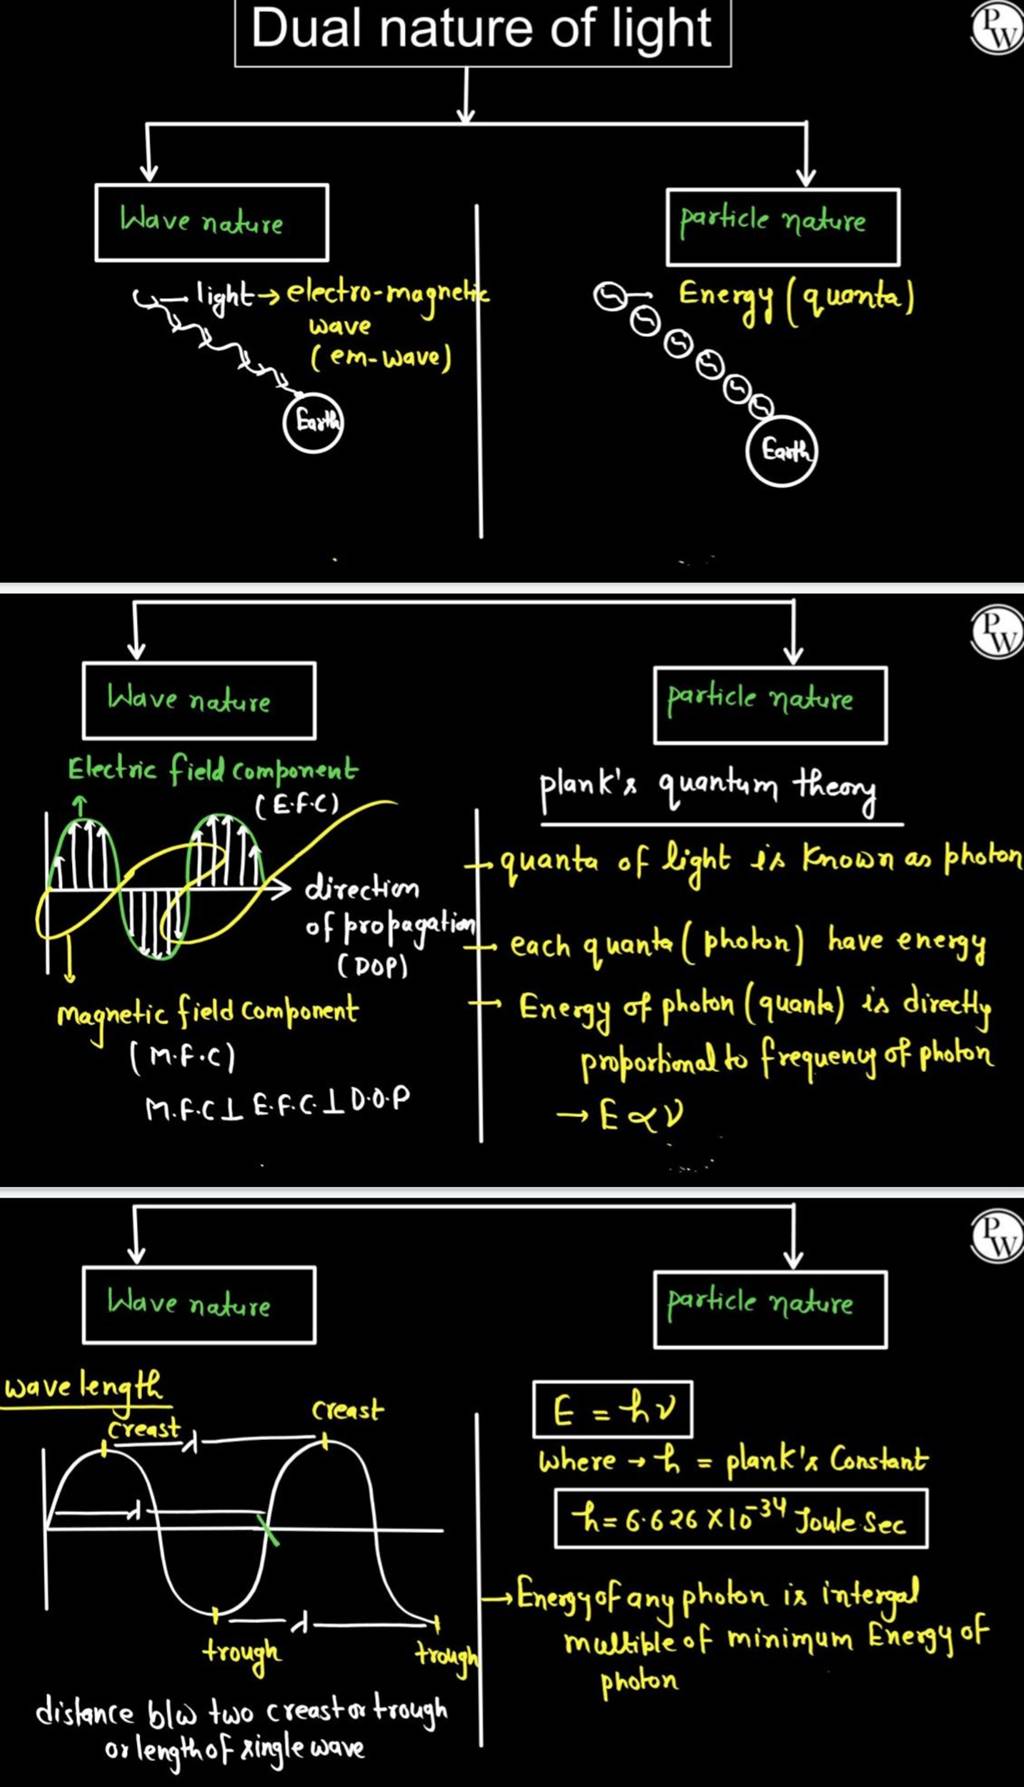 Dual nature of light
PW
Wave nature
particle nature
light → electro-magnetic
wave
(em-wave)
Earth
Energy (quanta)
Earth
PW
Wave nature
particle nature
Electric field component
(E.F.C)
direction
of propagation
(DOP)
Magnetic field component
(M.F.C)
M.F.C ⊥ E.F.C. ⊥ D.O.P
plank's quantum theory
→ quanta of light is known as photon
→ each quanta (photon) have energy
→ Energy of photon (quanta) is directly
proportional to frequency of photon
→ E ∝ ν
PW
Wave nature
particle nature
wave length
creast
creast
λ
λ
λ
trough
trough
distance b/w two creast or trough
or length of single wave
E = hν
where → h = plank's Constant
h = 6.626 × 10⁻³⁴ Joule Sec
→ Energy of any photon is intergal
multible of minimum Energy of
photon